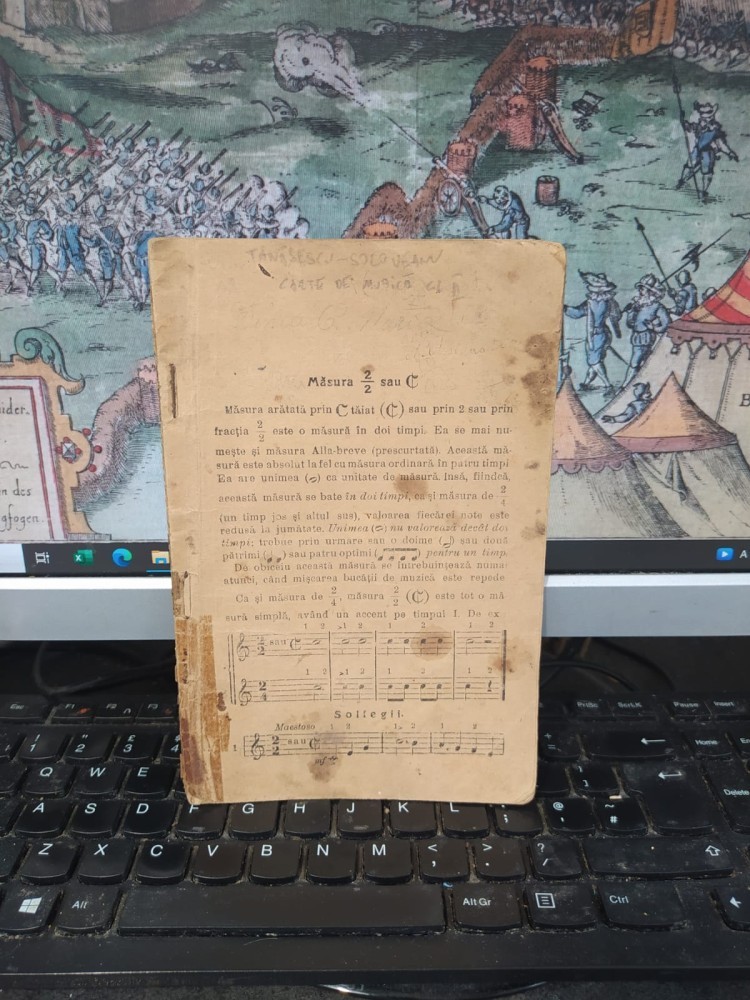 TĂNĂSESCU-SOCOVEANU
CARTE DE MUZICĂ CL II
Măsura 2/2 sau C
Măsura arătată prin C tăiat (C) sau prin 2 sau prin
fracția 2/2 este o măsură în doi timpi. Ea se mai nu-
mește și măsura Alla-breve (prescurtată). Această mă-
sură este absolut la fel cu măsura ordinară în patru timpi
Ea are unimea ca unitate de măsură. Însă, fiindcă,
această măsură se bate în doi timpi, ca și măsura de 2/4
(un timp jos și altul sus), valoarea fiecărei note este
redusă la jumătate. Unimea nu valorează decât doi
timpi; trebue prin urmare sau o doime sau două
pătrimi sau patru optimi pentru un timp.
De obiceiu această măsură se întrebuințează numai
atunci, când mișcarea bucății de muzică este repede
Ca și măsura de 2/4, măsura 2/2 (C) este tot o mă
sură simplă, având un accent pe timpul I. De ex
1 2 >1 2 1 2 1 2
2/2 sau C
1 2 >1 2 1 2 1 2
2/4
Solfegii.
Maestoso 1 2 1 2 1 2
1 2/2 sau C
mf
uider.
n des
gfogen.
B
A
Esc F1 F2 F3 PrtSc ScrLK Pause Insert
! 1 " 2 £ 3 $ 4 Home
Q W E } ] Delete
A S D F G H J K L : ; @ ' ~ #
Z X C V B N M < , > . ? /
Alt Alt Gr Ctrl